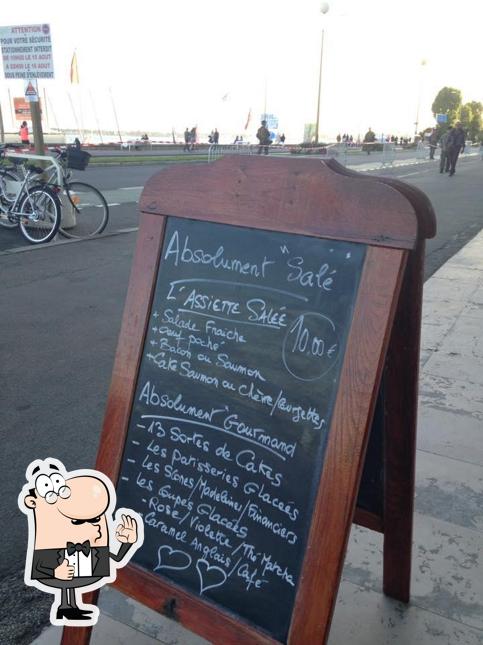 ATTENTION
POUR VOTRE SÉCURITÉ
STATIONNEMENT INTERDIT
Absolument "Salé"
L'ASSIETTE SALÉE
+ Salade Fraîche
+ Oeuf poché
+ Bacon ou Saumon
+ Cake Saumon ou Chèvre/Courgettes
10,00€
Absolument "Gourmand
- 13 Sortes de Cakes
- Les Patisseries Glacées
- Les Scones/Madeleines/Financiers
- Les Coupes Glacées
- Rose/Violette/Thé Matcha
Caramel Anglais/Café